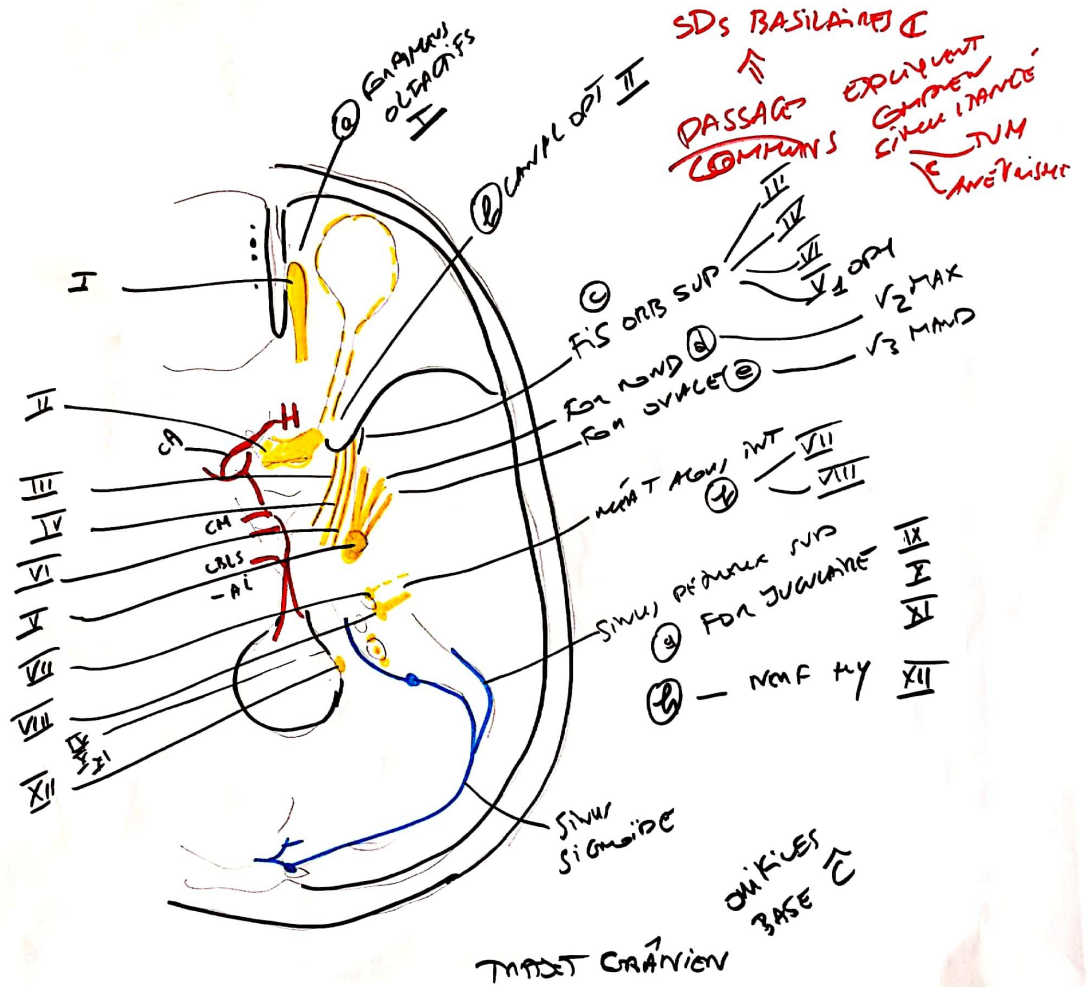 SDs BASILAIRES C
PASSAGES
COMMUNS
EXPLIQUENT
COMPREN
SIMULTANÉE
TUM
ANÉVRISME
a FORAMENS
OLFACTIFS
I
b CANAL OPT II
c
FIS ORB SUP
III
IV
VI
V1 OPH
FOR ROND d
V2 MAX
FOR OVALE e
V3 MAND
MÉAT ACOUS INT
VII
VIII
SINUS PÉTREUX SUP
g FOR JUGULAIRE
IX
X
XI
h — NERF HY XII
SINUS
SIGMOÏDE
I
II
CA
H
III
IV
CM
VI
CBLS
- AI
V
VII
VIII
IX
X
XI
XII
ORIFICES
BASE C
TRAJET CRÂNIEN